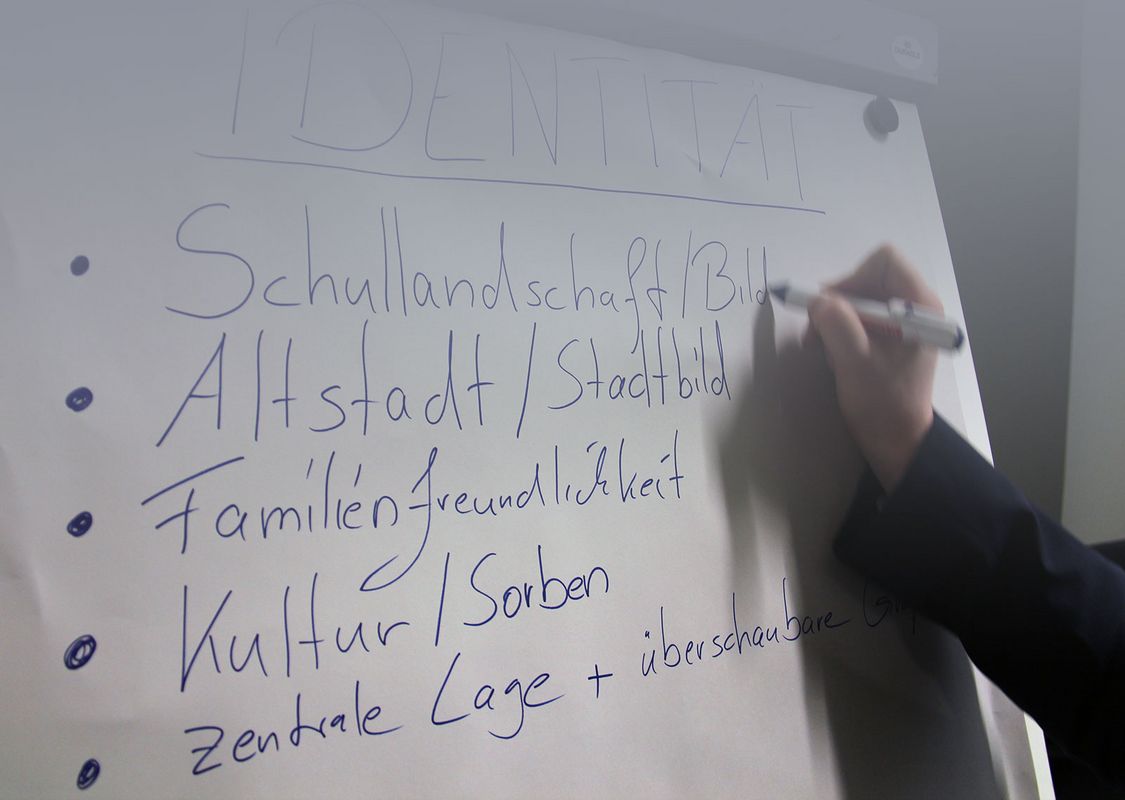 IDENTITÄT
• Schullandschaft/Bild
• Altstadt/Stadtbild
• Familienfreundlichkeit
• Kultur/Sorben
• zentrale Lage + überschaubare
DURABLE